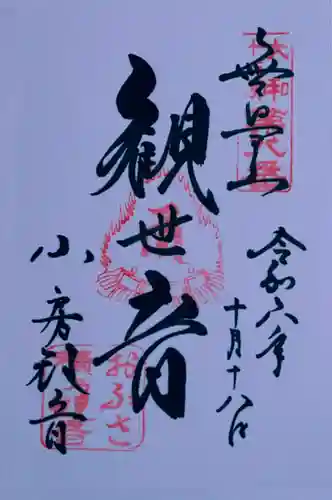 十無量山
観世音
令和六年
十月十八日
小房観音
おふさ